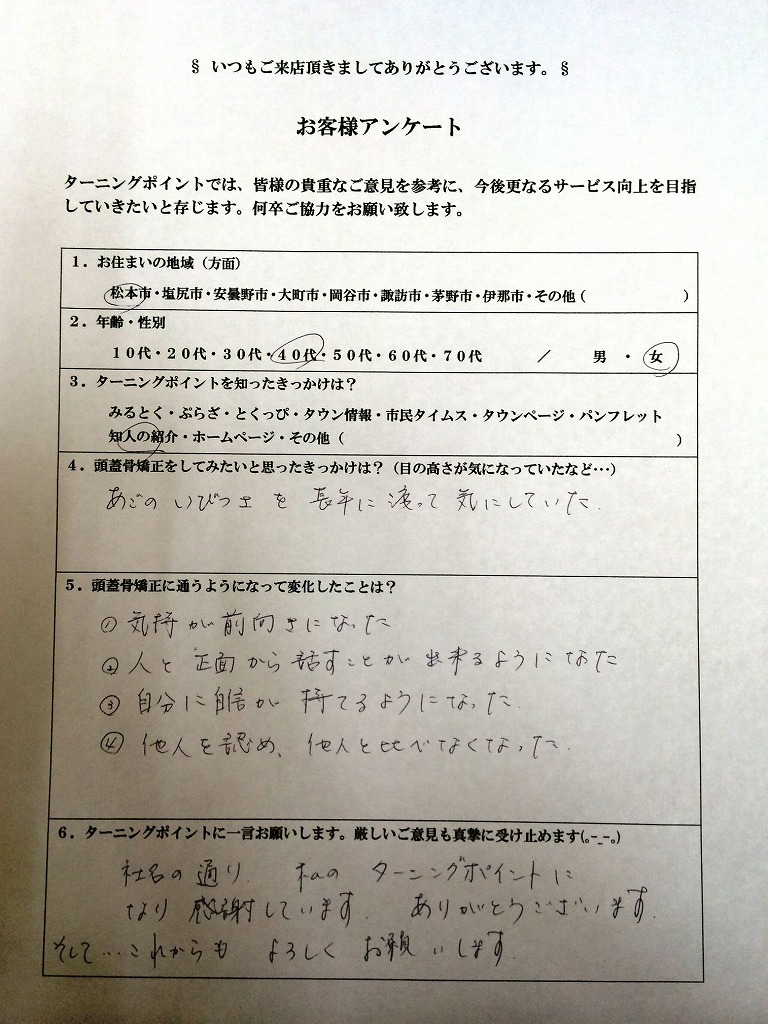 § いつもご来店頂きましてありがとうございます。§
お客様アンケート
ターニングポイントでは、皆様の貴重なご意見を参考に、今後更なるサービス向上を目指
していきたいと存じます。何卒ご協力をお願い致します。
１．お住まいの地域（方面）
松本市・塩尻市・安曇野市・大町市・岡谷市・諏訪市・茅野市・伊那市・その他（　　　　　　）
２．年齢・性別
１０代・２０代・３０代・４０代・５０代・６０代・７０代　　／　　男　・　女
３．ターニングポイントを知ったきっかけは？
みるとく・ぷらざ・とくっぴ・タウン情報・市民タイムス・タウンページ・パンフレット
知人の紹介・ホームページ・その他（　　　　　　）
４．頭蓋骨矯正をしてみたいと思ったきっかけは？（目の高さが気になっていたなど…）
あごの いびつさ を 長年に 渡って 気にしていた.
５．頭蓋骨矯正に通うようになって変化したことは？
① 気持が前向きになった
② 人と 正面から 話すことが 出来るようになた
③ 自分に自信が 持てるようになった.
④ 他人を認め、他人と比べなくなった.
６．ターニングポイントに一言お願いします。厳しいご意見も真摯に受け止めます(｡-_-｡)
社名の通り. 私の ターニングポイントに
なり 感謝しています. ありがとうございます.
そして…これからも よろしく お願いします.